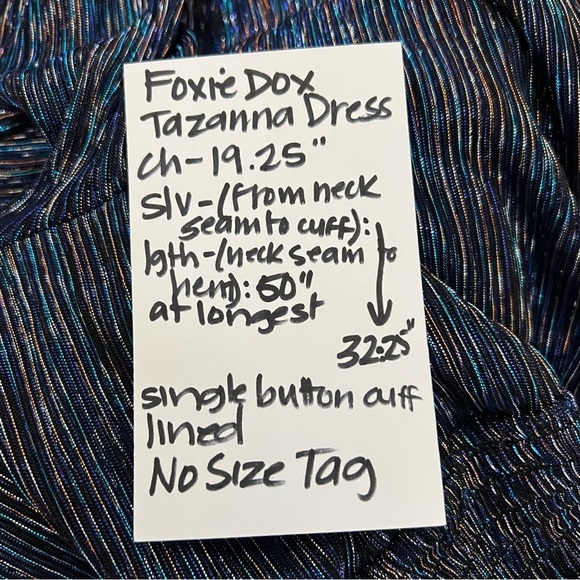 Foxie Dox
Tazanna Dress
ch-19.25"
Slv-(from neck
seam to cuff):
lgth-(neck seam to
hem): 50"
at longest
32.25"
single button cuff
lined
No Size Tag